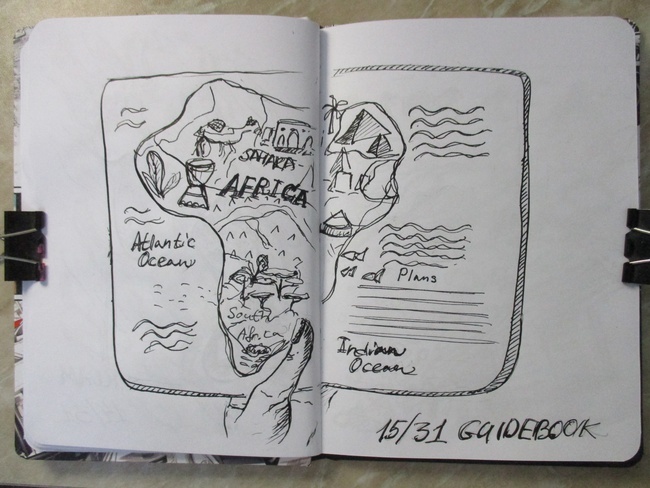 SAHARA
AFRICA
Atlantic
Ocean
Plans
South
Africa
Indian
Ocean
15/31 GUIDEBOOK